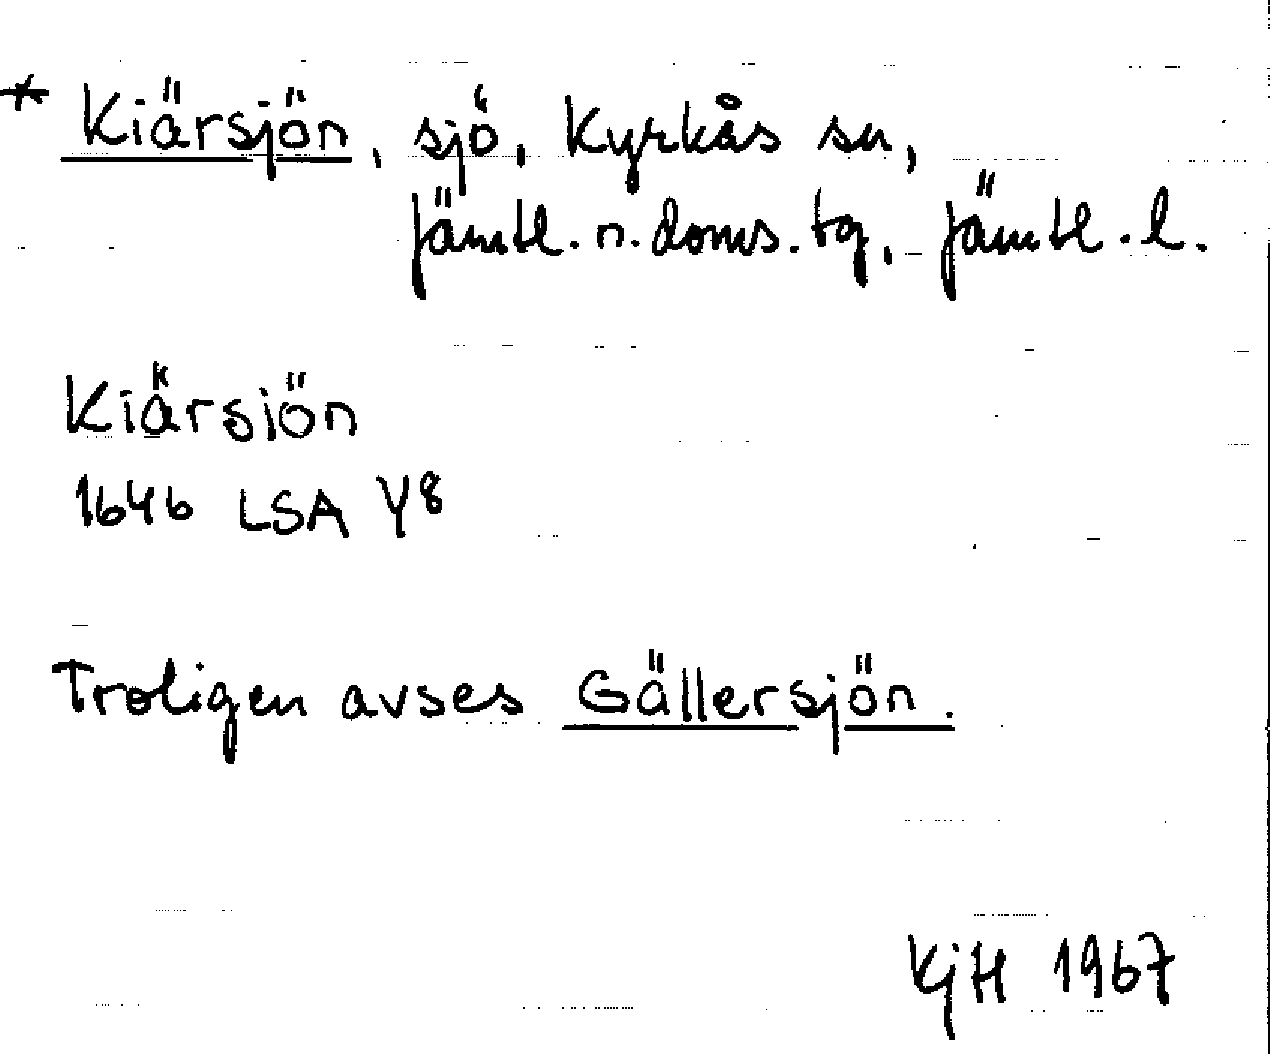 * Kiärsjön, sjö, Kyrkås sn,
Jämtl. n. doms. tg, Jämtl. l.
Kiärsiön
1646 LSA Y8
Troligen avses Gällersjön.
KjH 1967